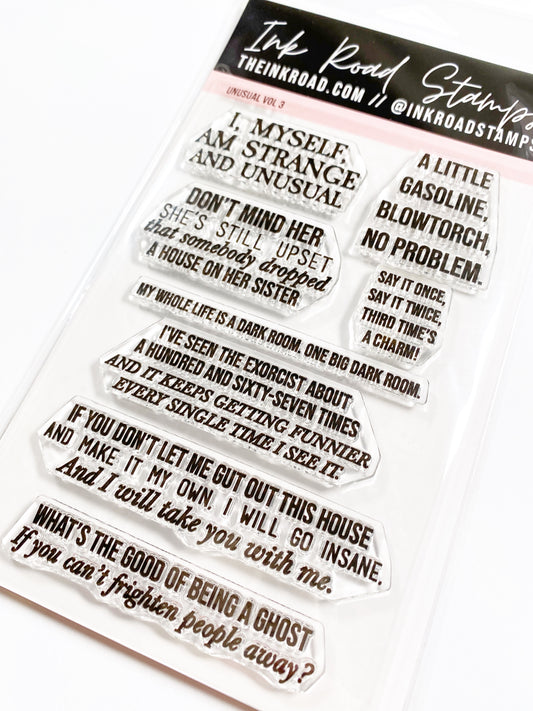 Ink Road Stamps
THEINKROAD.COM // @INKROADSTAMPS
UNUSUAL VOL 3
I, MYSELF,
AM STRANGE
AND UNUSUAL
A LITTLE
GASOLINE,
BLOWTORCH,
NO PROBLEM.
DON'T MIND HER
SHE'S STILL UPSET
that somebody dropped
A HOUSE ON HER SISTER
SAY IT ONCE,
SAY IT TWICE,
THIRD TIME'S
A CHARM!
MY WHOLE LIFE IS A DARK ROOM. ONE BIG DARK ROOM.
I'VE SEEN THE EXORCIST ABOUT
A HUNDRED AND SIXTY-SEVEN TIMES
AND IT KEEPS GETTING FUNNIER
EVERY SINGLE TIME I SEE IT.
IF YOU DON'T LET ME GUT OUT THIS HOUSE
AND MAKE IT MY OWN, I WILL GO INSANE,
And I will take you with me.
WHAT'S THE GOOD OF BEING A GHOST
If you can't frighten people away?